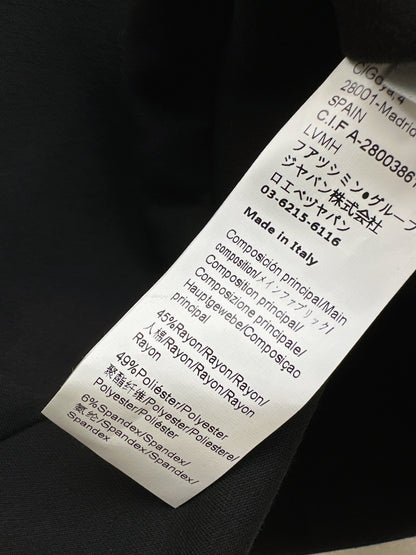 C/Goya,4
28001-Madrid
SPAIN
C.I.F A-2800386
LVMH
フアツシミン●グループ
ジヤパン株式会社
ロエベツヤパン
03-6215-6116
Made in Italy
Composición principal/Main
composition/メインファブリック/
Composition principale/
Composizione principale/
Hauptgewebe/Composiçao
principal
45%Rayon/Rayon/Rayon/
人棉/Rayon/Rayon/Rayon/
Rayon
49%Poliéster/Polyester
聚酯纤维/Polyester/Poliestere/
Polyester/Poliéster
6%Spandex/Spandex/
氨纶/Spandex/Spandex/
Spandex